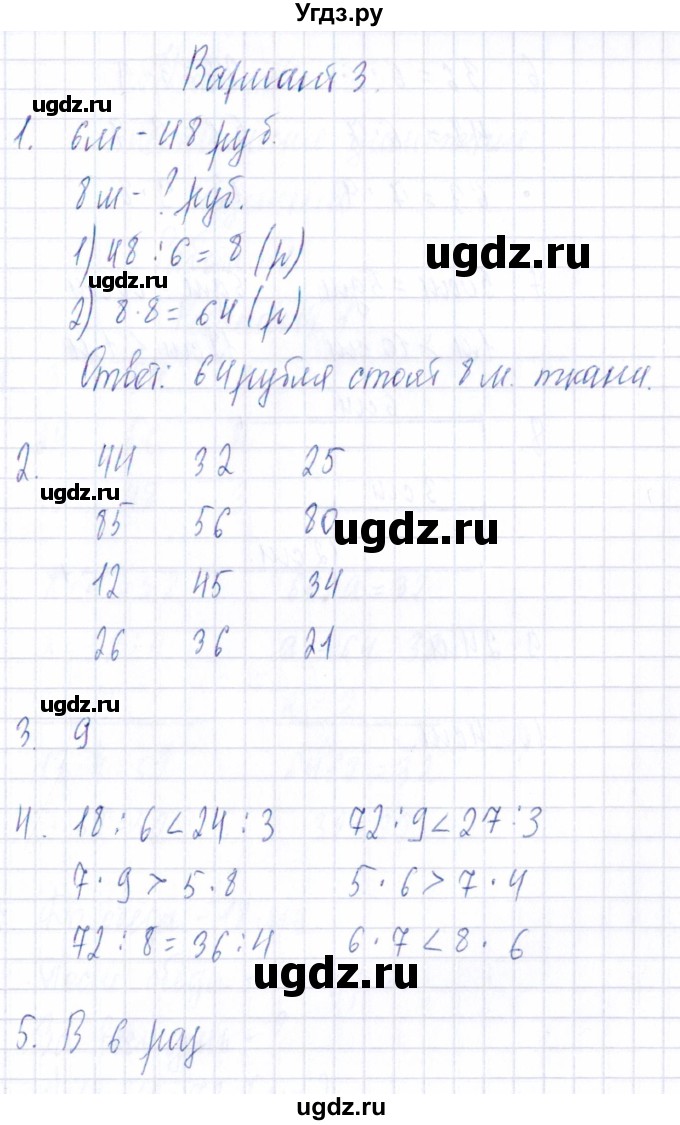 Угдз.ру
Вариант 3.
ugdz.ru
1. 6м - 48 руб.
8м - ? руб.
ugdz.ru
1) 48 : 6 = 8 (р)
ugdz.ru
2) 8 · 8 = 64 (р)
Ответ: 64 рубля стоят 8 м. ткани.
2. 44 32 25
ugdz.ru
85 56 80
ugdz.ru
12 45 34
26 36 21
ugdz.ru
3. 9
4. 18 : 6 < 24 : 3 72 : 9 < 27 : 3
7 · 9 > 5 · 8 5 · 6 > 7 · 4
72 : 8 = 36 : 4 6 · 7 < 8 · 6
ugdz.ru ugdz.ru
5. В 6 раз
ugdz.ru